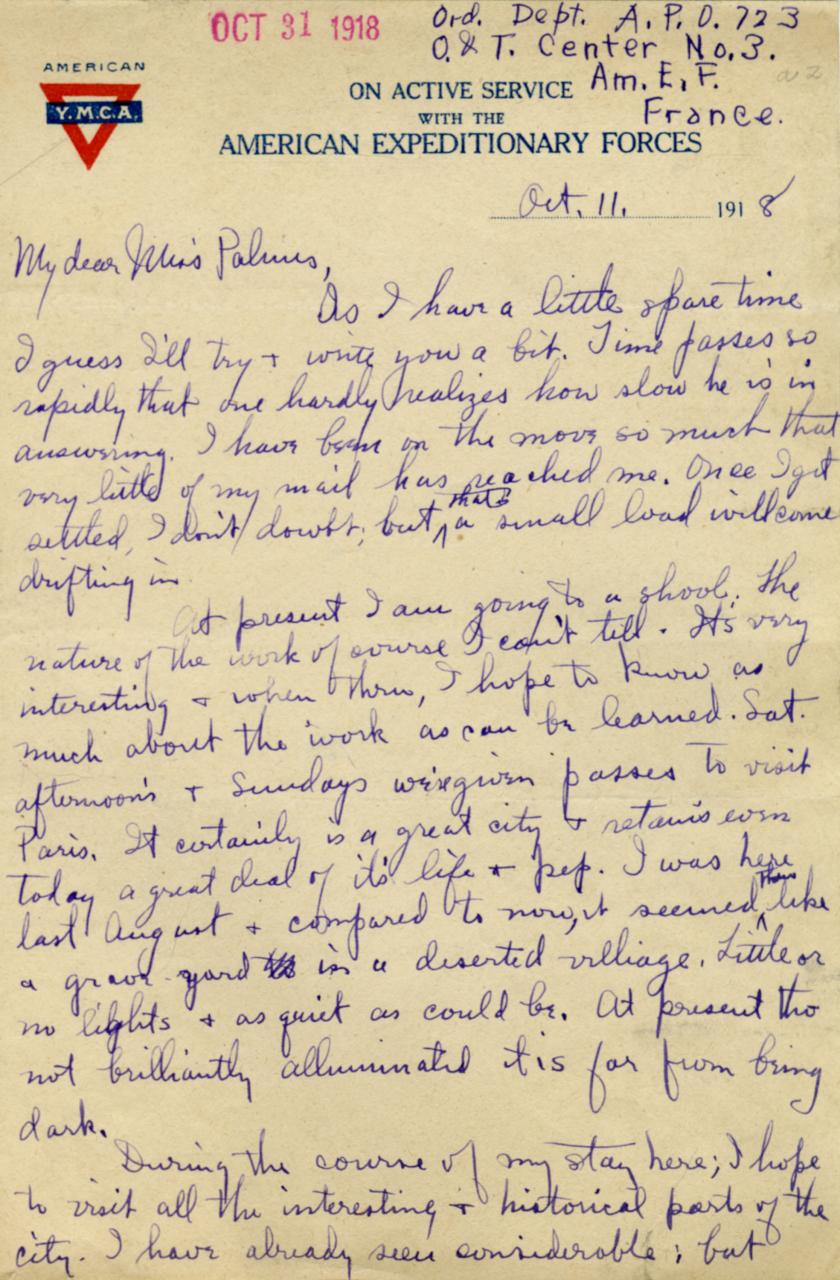 OCT 31 1918
Ord. Dept. A.P.O. 723
O. & T. Center No. 3.
Am. E. F.
France.
AMERICAN
Y.M.C.A.
ON ACTIVE SERVICE
WITH THE
AMERICAN EXPEDITIONARY FORCES
Oct. 11. 1918
My dear Miss Palms,
As I have a little spare time
I guess I'll try + write you a bit. Time passes so
rapidly that one hardly realizes how slow he is in
answering. I have been on the move so much that
very little of my mail has reached me. Once I get
settled, I don't doubt, but that a small load will come
drifting in.
At present I am going to a shool. The
nature of the work of course I can't tell. It's very
interesting + when thru, I hope to know as
much about the work as can be learned. Sat.
afternoon's + Sundays we're given passes to visit
Paris. It certainly is a great city + retains even
today a great deal of it's life + pep. I was here
last August + compared to now, it seemed then like
a grave yard in a deserted villiage. Little or
no lights + as quiet as could be. At present tho
not brilliantly alluminated it is far from being
dark.
During the course of my stay here; I hope
to visit all the interesting + historical parts of the
city. I have already seen considerable; but